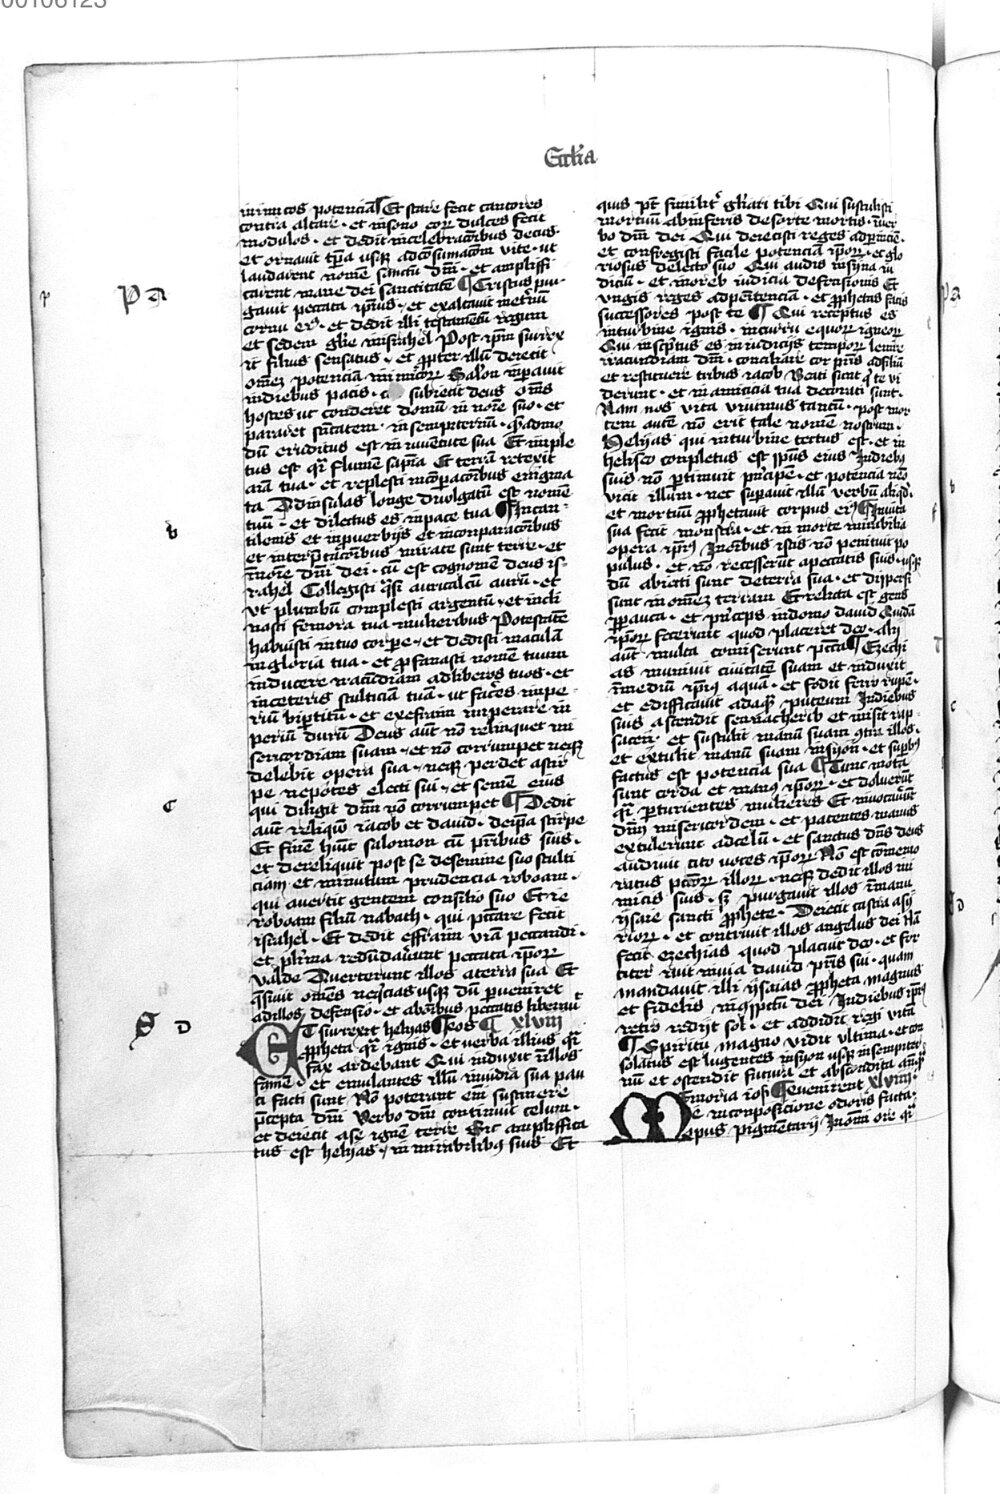 Eccl'ia
inimicos potencia Et stare fecit cantores
contra altare · et in sono eorũ dulces fecit
modulos · et dedit in celebracõibus decus ·
et ornauit tꝑa usqꝫ ad cõsumacõem vite · ut
laudarent nomẽ sanctũ dñi · et ampliffi
carent mane dei sanctitatẽ ¶ Cristus pur-
gauit peccata ipsius · et exaltauit in eternũ
cornu eiꝰ · et dedit illi testamentũ regum
et sedem glie in israhel Post ipm surrex
it filius sensatus · et ꝓpter illũ deiecit
omẽꝫ potenciã inimicorꝫ Salon inperauit
in diebus pacis · cui subiecit deus om̃s
hostes ut conderet domũ in noĩe suo · et
pararet sc̃itatem · in sempiternũ · Quadmo
dũ eruditus est in iuuentute sua Et imple
tus est qͥ flumẽ sapĩa Et terrã retexit
aĩa tua · et replesti in cõparacõibus enigma
ta Ad insulas longe diuulgatũ est nomẽ
tuũ · et dilectus es in pace tua ¶ In can-
tilenis et in ꝓuerbijs et in conparacõibus
et interp̃tacõibus mirate sunt terre · et
in noĩe dñi dei · cũ est cognomẽ deus is-
rahel Collegisti qͥsi auricalcũ aurũ · et
ut plumbũ complesti argentũ · et incli
nasti femora tua mulieribus Potestatẽ
habuisti in tuo corpe · et dedisti maculã
in gloria tua · et ꝓfanasti nomẽ tuum
inducere iracũdiam ad liberos tuos · et
in ceteris stulticiã tuã · ut faceres inpe-
riũ bipertitũ · et ex efraim inperare in
periũ durũ Deus aut̃ nõ relinquet mi
sericordiam suam · et nõ corrumpet neqꝫ
delebit opera sua · neqꝫ perdet a stir
pe nepotes electi sui · et semẽ eius
qui diligit dñm nõ corrumpet ¶ Dedit
aut̃ reliquũ iacob et dauid · de ip̃a stirpe
Et finẽ hũit salomon cũ p̃ribus suis ·
et dereliquit post se de semine suo stulti
ciam et minutum prudencia roboam ·
qui auertit gentem consilio suo Et ie
roboam filiũ nabath · qui p̃ccare fecit
israhel · Et dedit effraim viã peccandi ·
et plĩma redũdauerunt peccata ip̃orꝫ
valde Auerterunt illos a terra sua Et
q̃siuit om̃es neq̃cias usqꝫ dũ ꝑueniret
ad illos defensio · et ab om̃ibus peccatis liberauit
Et surrexit helyas eos ¶ xlviij
ꝓpheta qͥ ignis · et verba illius qͥ
fax ardebant Qui induxit in illos
famẽ · et emulantes illũ inuidia sua pau
ci facti sunt Nõ poterant em̃ sustinere
p̃cepta dñi Verbo dñi continuit celum ·
et deiecit a se ignẽ terre Sic ampliffica
tus est helyas · in mirabilibꝫ suis Et
quis p̃t similiter gl̃iari tibi Qui sustulisti
mortuũ ab inferis de sorte mortis · in ver
bo dñi dei Qui deiecisti reges ad ꝑniciẽ ·
et confregisti facile potenciã ip̃orꝫ · et glo
riosus de lecto suo Qui audis in syna iu
diciũ · et in oreb iudicia defensionis Et
ungis reges ad penitenciã · et ꝓphetas facis
successores post te ¶ Qui receptus es
in turbine ignis · in curru equorꝫ igneorꝫ
Qui inscriptus es in iudicijs temporꝫ lenire
iracundiam dñi · conciliare cor p̃ris ad filiũ
et restituere tribus iacob Beati sunt q̃ te vi
derunt · et in amicicia tua decorati sunt ·
Nam nos vita viuimus tantũ · post mor
tem aut̃ nõ erit tale nomẽ nostrum ·
Helyas qui in turbine tectus est · et in
heliseo completus est sp̃us eius In diebꝫ
suis nõ ꝑtimuit p̃ncipẽ · et potencia nẽo
vicit illum · nec suꝑauit illũ verbũ aliq̃d ·
et mortuũ ꝓphetauit corpus eiꝰ ¶ In vita
sua fecit monstra · et in morte mirabilia
opera ip̃iꝰ In om̃ibus istis nõ penituit po
pulus · et nõ recesserũt a peccatis suis · usqꝫ
dũ abiecti sunt de terra sua · et disꝑsi
sunt in omẽꝫ terram Et relicta est gens
ꝑpauca · et p̃nceps in domo dauid Quidã
ip̃orꝫ fecerunt quod placeret deo · alij
aut̃ multa comiserunt p̃ccta ¶ Ezechi
as muniuit ciuitatẽ suam et induxit
in mediũ ip̃iꝰ aquã · et fodit ferro rupẽ ·
et edifficauit ad aquã puteum In diebus
suis ascendit sennacherib et misit rap-
sacen · et sustulit manũ suam contra illos ·
et extulit manũ suam in syon · et suꝑbꝰ
factus est potencia sua ¶ Tunc mota
sunt corda et manꝰ ip̃orꝫ · et doluerũt
qͥ ꝑturientes mulieres Et inuocauerũt
dñm misericordem · et patentes manus
extulerunt ad celũ · et sanctus dñs deus
audiuit cito voces ip̃orꝫ Nõ est cõmemo
ratus p̃ccorꝫ illorꝫ · neqꝫ dedit illos ini
micis suis · sꝫ purgauit illos in manu
ysaie sancti ꝓphete · Deiecit castra assi
riorꝫ · et contriuit illos angelus dei Nã
fecit ezechias quod placuit deo · et for
titer iuit in via dauid p̃ris sui · quam
mandauit illi ysaias ꝓpheta magnus
et fidelis in cõspectu dei In diebus ip̃iꝰ
retro redijt sol · et addidit regi vitã
¶ Spiritu magno vidit ultima · et con
solatus est lugentes in syon usqꝫ in sempiter
nũ et ostendit futura et abscondita anteqͣ
Memoria iosie ¶ euenirent xlviiij ·
e in composicione odoris facta ·
opus pigmentarij In om̃i ore qͥ
P a
b
c
S D